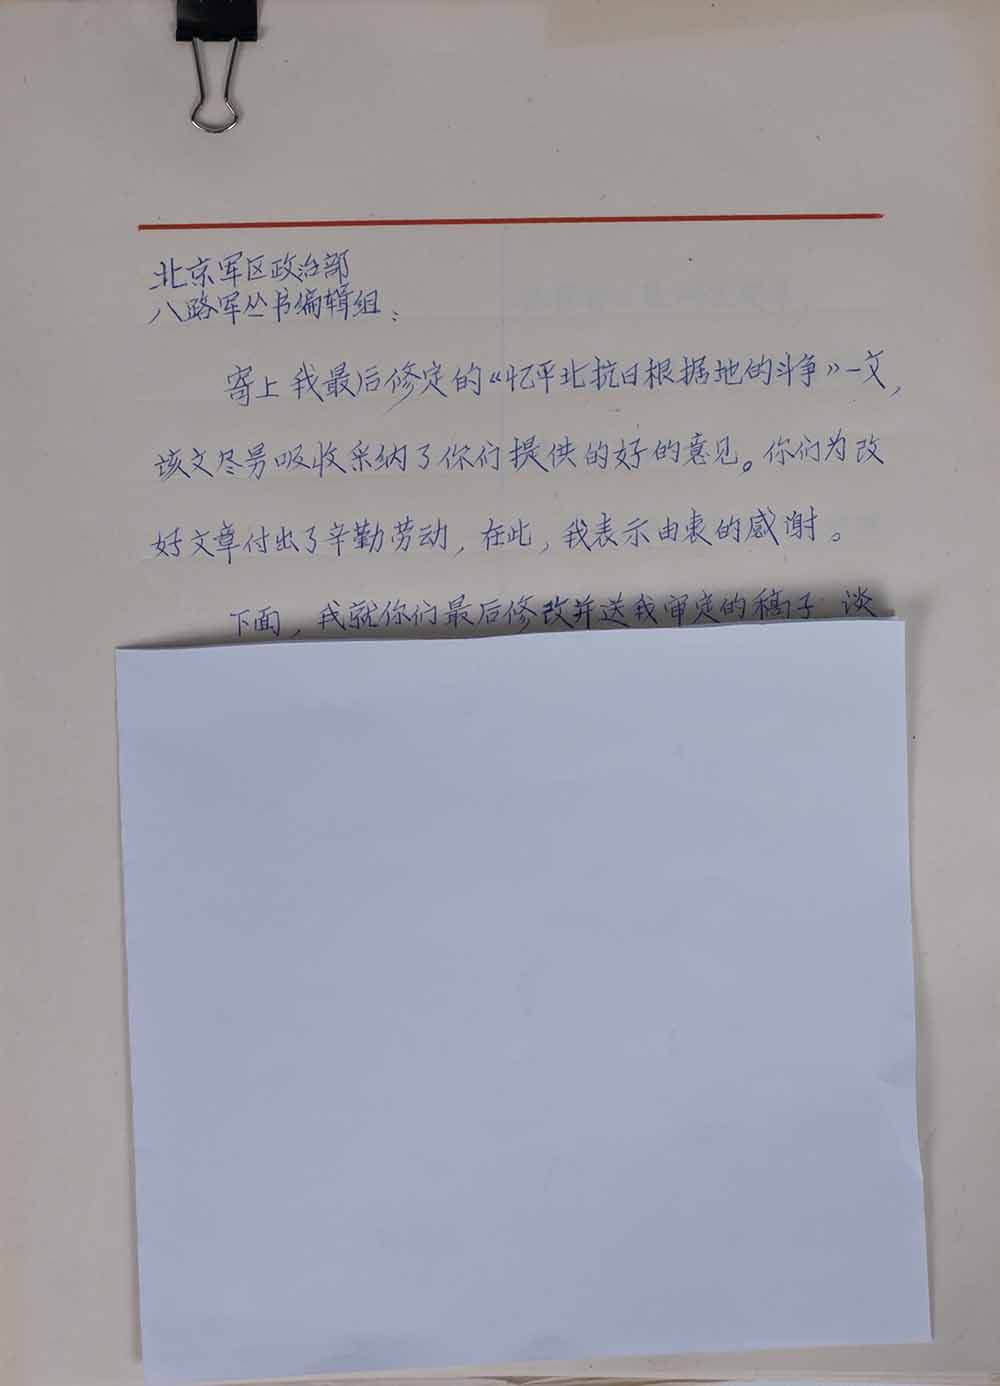 北京军区政治部
八路军丛书编辑组：
寄上我最后修定的《忆平北抗日根据地的斗争》一文，
该文尽量吸收采纳了你们提供的好的意见。你们为改
好文章付出了辛勤劳动，在此，我表示由衷的感谢。
下面，我就你们最后修改并送我审定的稿子 谈